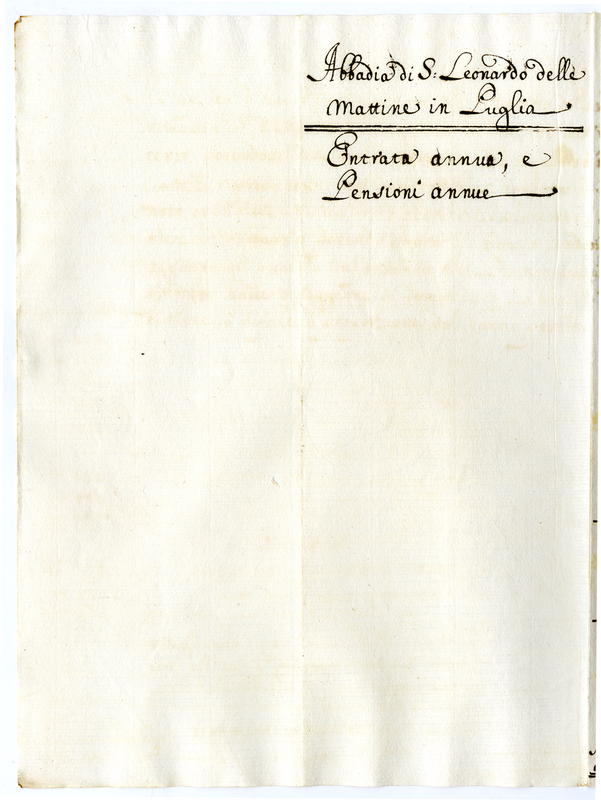 Abbadia di S: Leonardo delle
Mattine in Puglia
Entrata annua, e
Pensioni annue